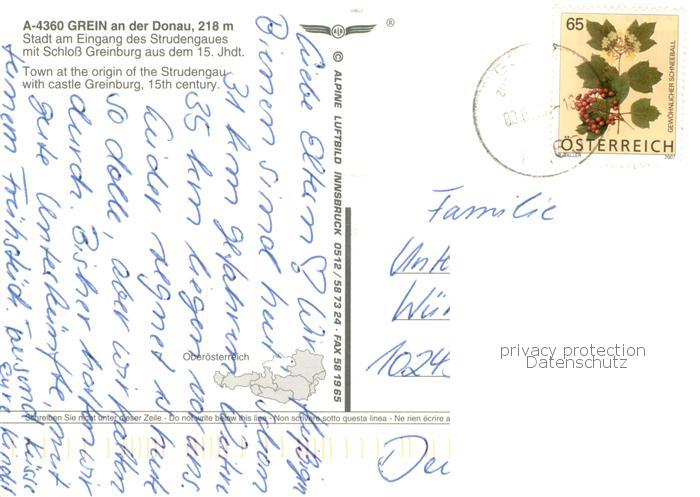 A-4360 GREIN an der Donau, 218 m
Stadt am Eingang des Strudengaues
mit Schloß Greinburg aus dem 15. Jhdt.
Town at the origin of the Strudengau
with castle Greinburg, 15th century.
®
© ALPINE LUFTBILD INNSBRUCK 0512/58 73 24 · FAX 58 19 65
65
GEWÖHNLICHER SCHNEEBALL
ÖSTERREICH
2007
Liebe Eltern!
Binnen sind
31 km gefahren
35 km liegen vor uns.
Leider regnet es heute
so dolle, aber wir halten
durch. Bisher hatten wir
gute Unterkünfte, mit
Frühstück. Tausend Küsse
Eure Kinder
Oberösterreich
Schreiben Sie nicht unter dieser Zeile - Do not write below this line - Non scrivere sotto questa linea - Ne rien écrire a
Familie
Unte
Wür
1024
Deu
privacy protection
Datenschutz